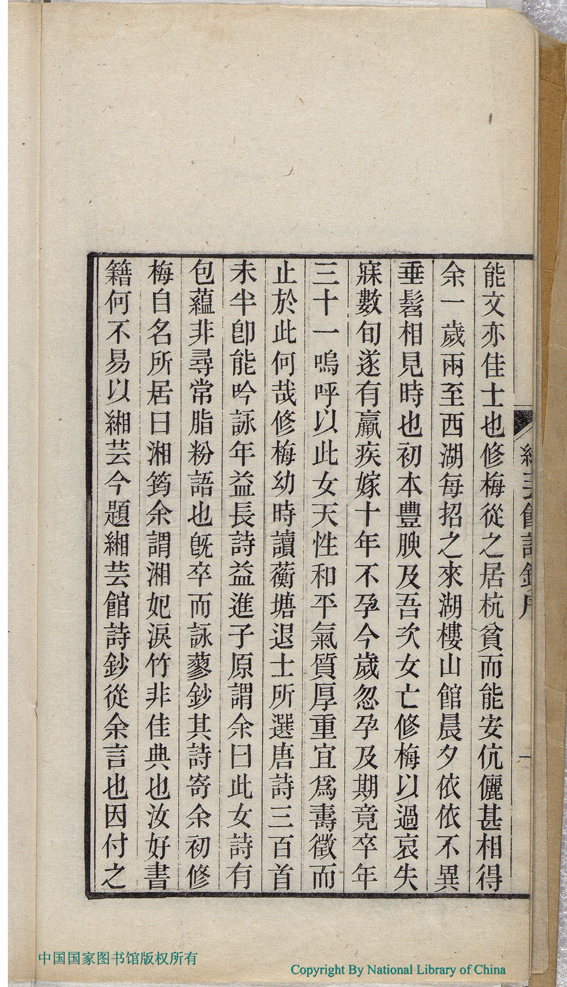 能文亦佳士也修梅從之居杭貧而能安伉儷甚相得
余一歲兩至西湖每招之來湖樓山館晨夕依依不異
垂髫相見時也初本豐腴及吾次女亡修梅以過哀失
寐數旬遂有羸疾嫁十年不孕今歲忽孕及期竟卒年
三十一嗚呼以此女天性和平氣質厚重宜爲壽徵而
止於此何哉修梅幼時讀蘅塘退士所選唐詩三百首
未半卽能吟詠年益長詩益進子原謂余曰此女詩有
包蘊非尋常脂粉語也旣卒而詠蓼鈔其詩寄余初修
梅自名所居曰湘筠余謂湘妃淚竹非佳典也汝好書
籍何不易以緗芸今題緗芸館詩鈔從余言也因付之
中国国家图书馆版权所有
Copyright By National Library of China